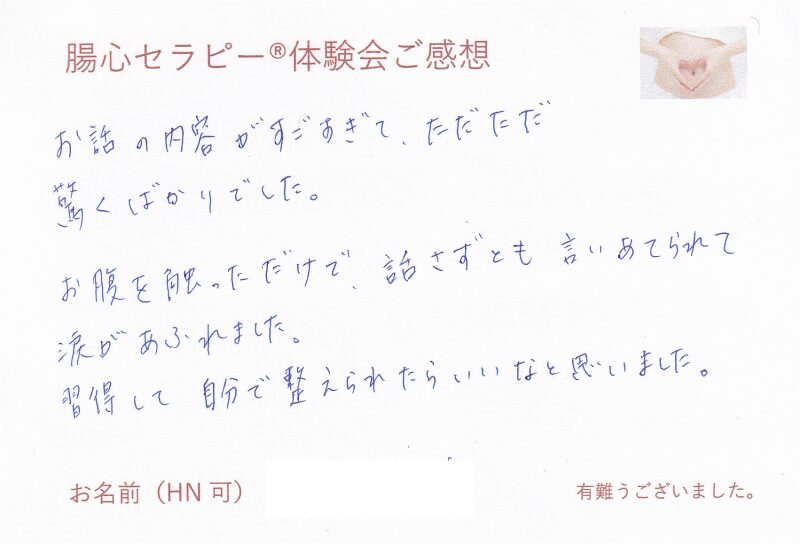 腸心セラピー®体験会ご感想
お話の内容がすごすぎて、ただただ
驚くばかりでした。
お腹を触っただけで、話さずとも言いあてられて
涙があふれました。
習得して自分で整えられたらいいなと思いました。
お名前（HN 可）
有難うございました。